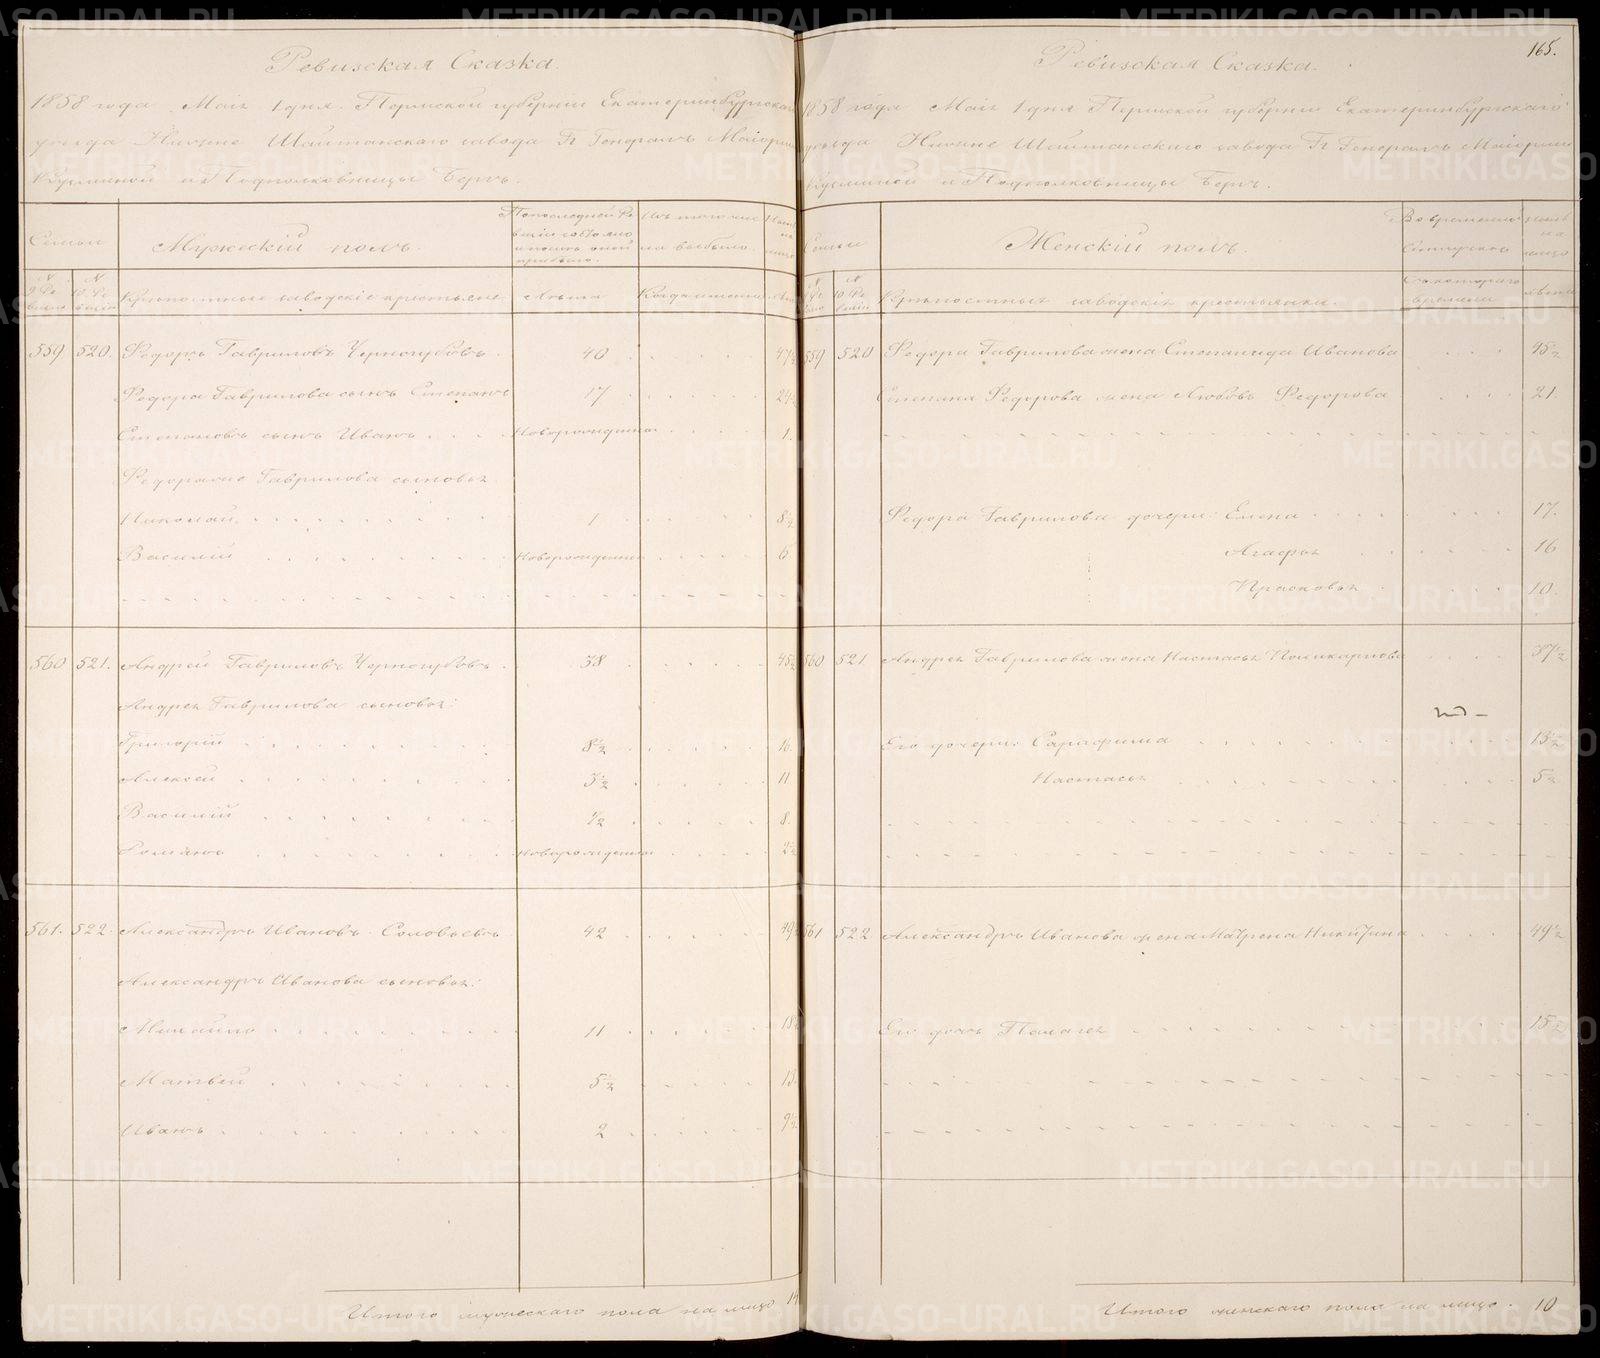 165.
Ревизская Сказка.
1858 года Маія 1 дня. Пермской губерніи Екатеринбургскаго
уезда Нижне Шайтанскаго завода Гг. Генералъ Маіорши
Кузминой и Подполковницы Бергъ.
Семьи
Мужескій полъ.
По последной Ревизіи состояло и после оной прибыло.
Изъ того числа выбыло.
Ныне на лицо
N 9 Ревизіи
N 10 Ревизіи
Крѣпостные заводскіе крестьяне
Лѣта
Когда именно
Лѣта
559 520. Федоръ Гавриловъ Черногубовъ. 40 47½
Федора Гаврилова сынъ Степанъ 17 24½
Степановъ сынъ Иванъ Новорожденный 1.
Федора Гаврилова сыновья
Николай 1 8½
Василій Новорожденный 6
560 521. Андрей Гавриловъ Черногубовъ. 38 45½
Андрея Гаврилова сыновья:
Григорій 8½ 16
Алексей 3½ 11
Василій ½ 8.
Романъ Новорожденный 2½
561. 522. Александръ Ивановъ Соловьевъ 42 49½
Александръ Иванова сыновья:
Михайло 11 18½
Матвей 5½ 13.
Иванъ 2 9½
Итого мужескаго пола на лицо 14
Ревизская Сказка.
1858 года Маія 1 дня Пермской губерніи Екатеринбургскаго
уезда Нижне Шайтанскаго завода Гг. Генералъ Маіорши
Кузминой и Подполковницы Бергъ.
Семьи
Женскій полъ.
Во временной отлучке
Ныне на лицо
N 9 Ревизіи
N 10 Ревизіи
Крѣпостныя заводскія крестьянки.
Съ котораго времени
Лѣта
559 520 Федора Гаврилова жена Степанида Иванова 45½
Степана Федорова жена Любовь Федорова 21.
Федора Гаврилова дочери: Елена 17.
Агафья 16
Прасковья 10.
560 521. Андрея Гаврилова жена Настасья Поликарпова 37½
Его дочери: Сарафима 13½
Настасья 5½
561 522 Александръ Иванова жена Матрена Никитина 49½
Его дочь Пелагея 15½
Итого женскаго пола на лицо. 10
METRIKI.GASO-URAL.RU